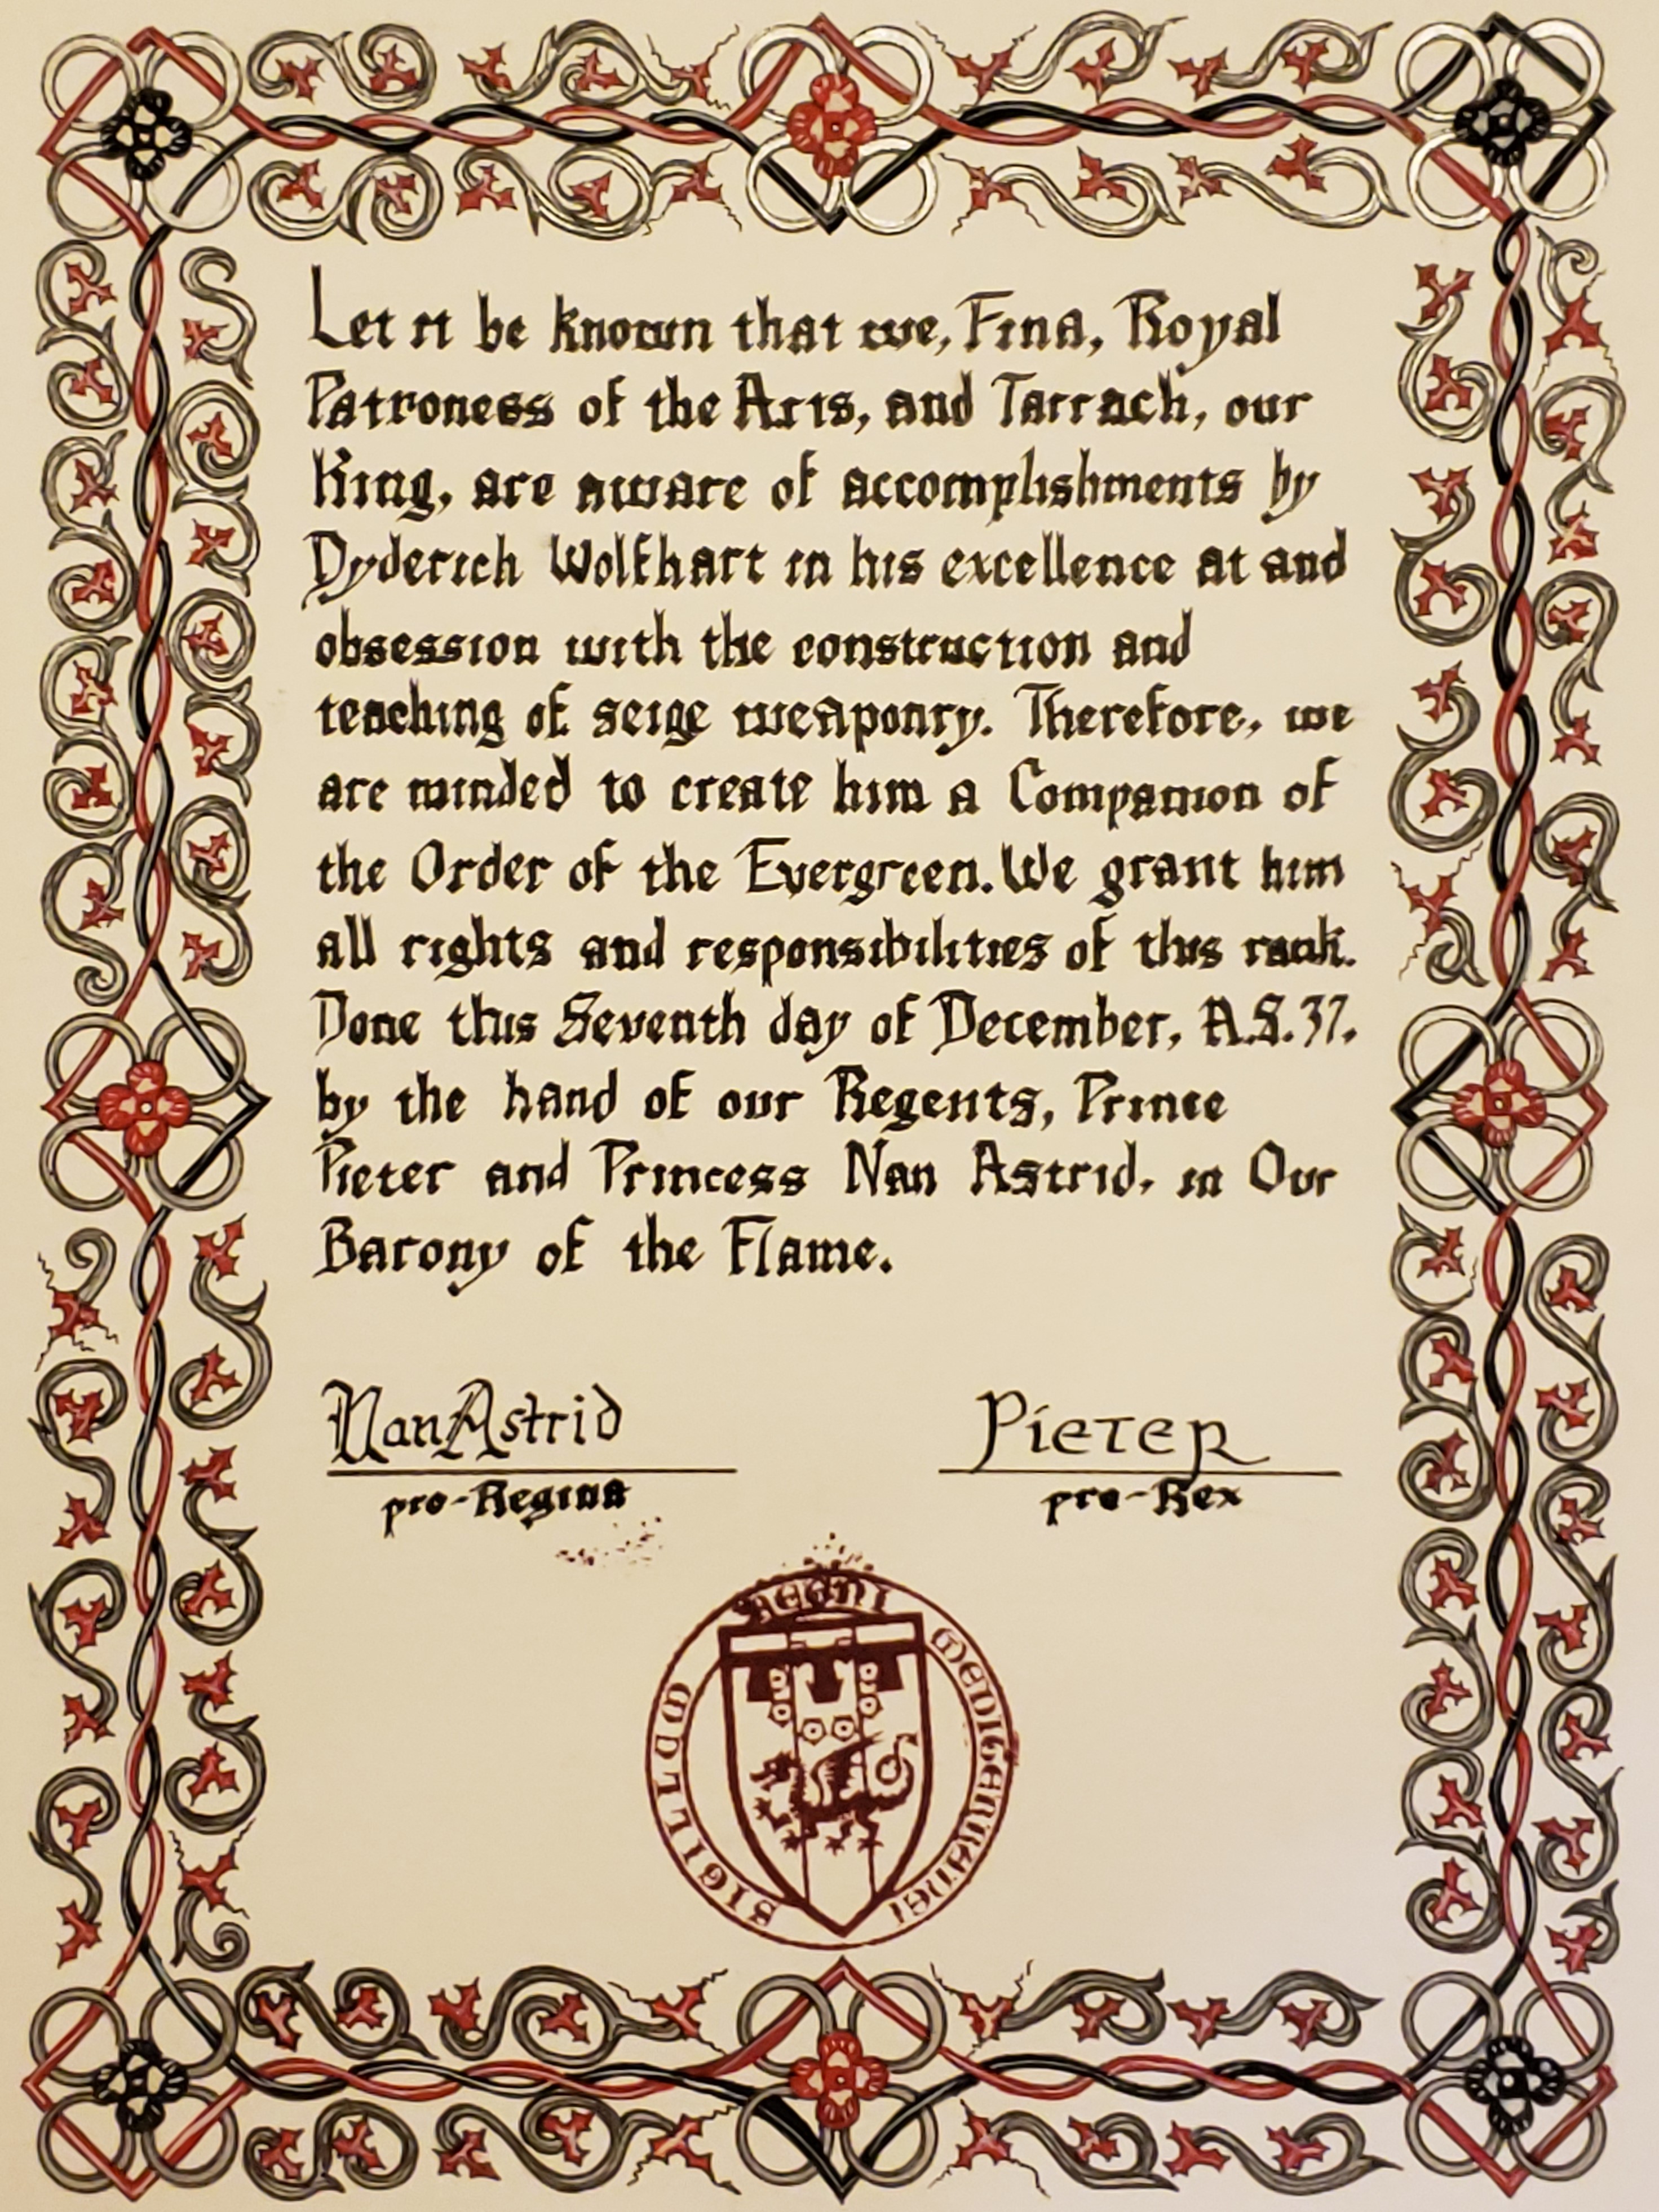 Let it be known that we, Fina, Royal
Patroness of the Arts, and Tarrach, our
King, are aware of accomplishments by
Dyderich Wolfhart in his excellence at and
obsession with the construction and
teaching of seige weaponry. Therefore, we
are minded to create him a Companion of
the Order of the Evergreen. We grant him
all rights and responsibilities of this rank.
Done this Seventh day of December, A.S. 37,
by the hand of our Regents, Prince
Pieter and Princess Nan Astrid, in Our
Barony of the Flame.
Nan Astrid
Pieter
pro-Regina
pro-Rex
SIGILLUM REGNI MEDITERRANEI